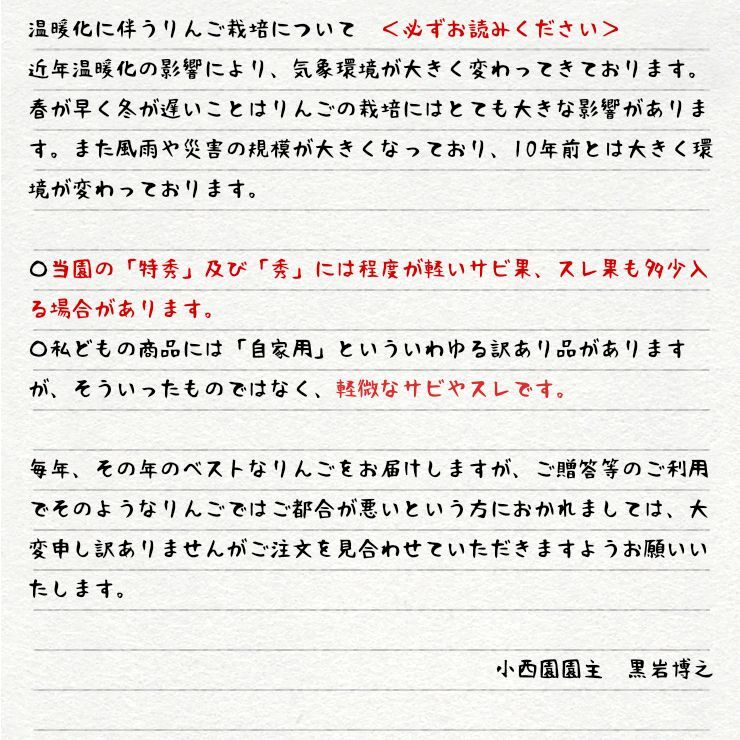 温暖化に伴うりんご栽培について　＜必ずお読みください＞
近年温暖化の影響により、気象環境が大きく変わってきております。
春が早く冬が遅いことはりんごの栽培にはとても大きな影響がありま
す。また風雨や災害の規模が大きくなっており、10年前とは大きく環
境が変わっております。
○当園の「特秀」及び「秀」には程度が軽いサビ果、スレ果も多少入
る場合があります。
○私どもの商品には「自家用」といういわゆる訳あり品があります
が、そういったものではなく、軽微なサビやスレです。
毎年、その年のベストなりんごをお届けしますが、ご贈答等のご利用
でそのようなりんごではご都合が悪いという方におかれましては、大
変申し訳ありませんがご注文を見合わせていただきますようお願いい
たします。
小西園園主　黒岩博之